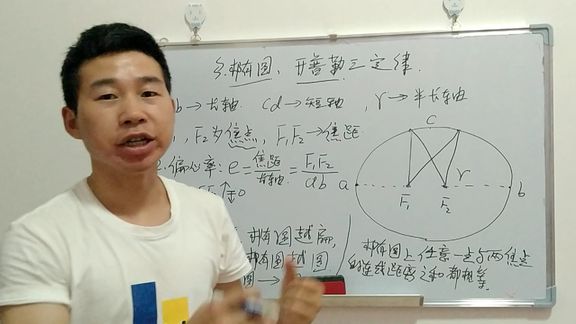 3.椭圆、开普勒三定律.
b→长轴 cd→短轴, r→半长轴
, F₂为焦点, F₁F₂→焦距
2.偏心率: e=焦距/长轴=F₁F₂/ab
→0
椭圆越扁,
椭圆越圆
圆→
c
a
r
b
F₁
F₂
椭圆上任意一点与两焦点
的连线距离之和都相等.